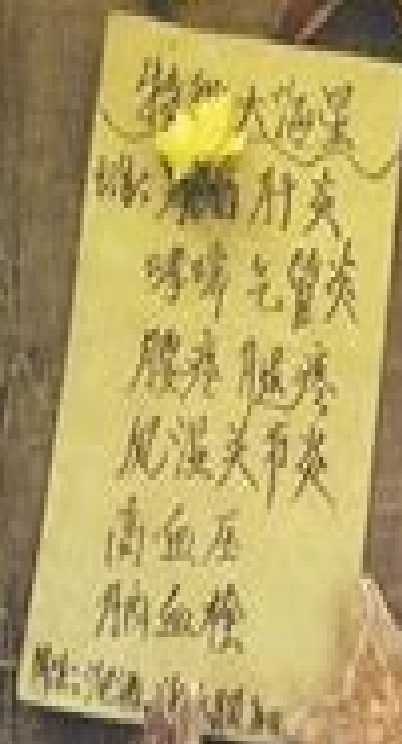 特级 大海星
肝炎
哮喘 气管炎
腰疼 腿疼
风湿关节炎
高血压
脑血栓